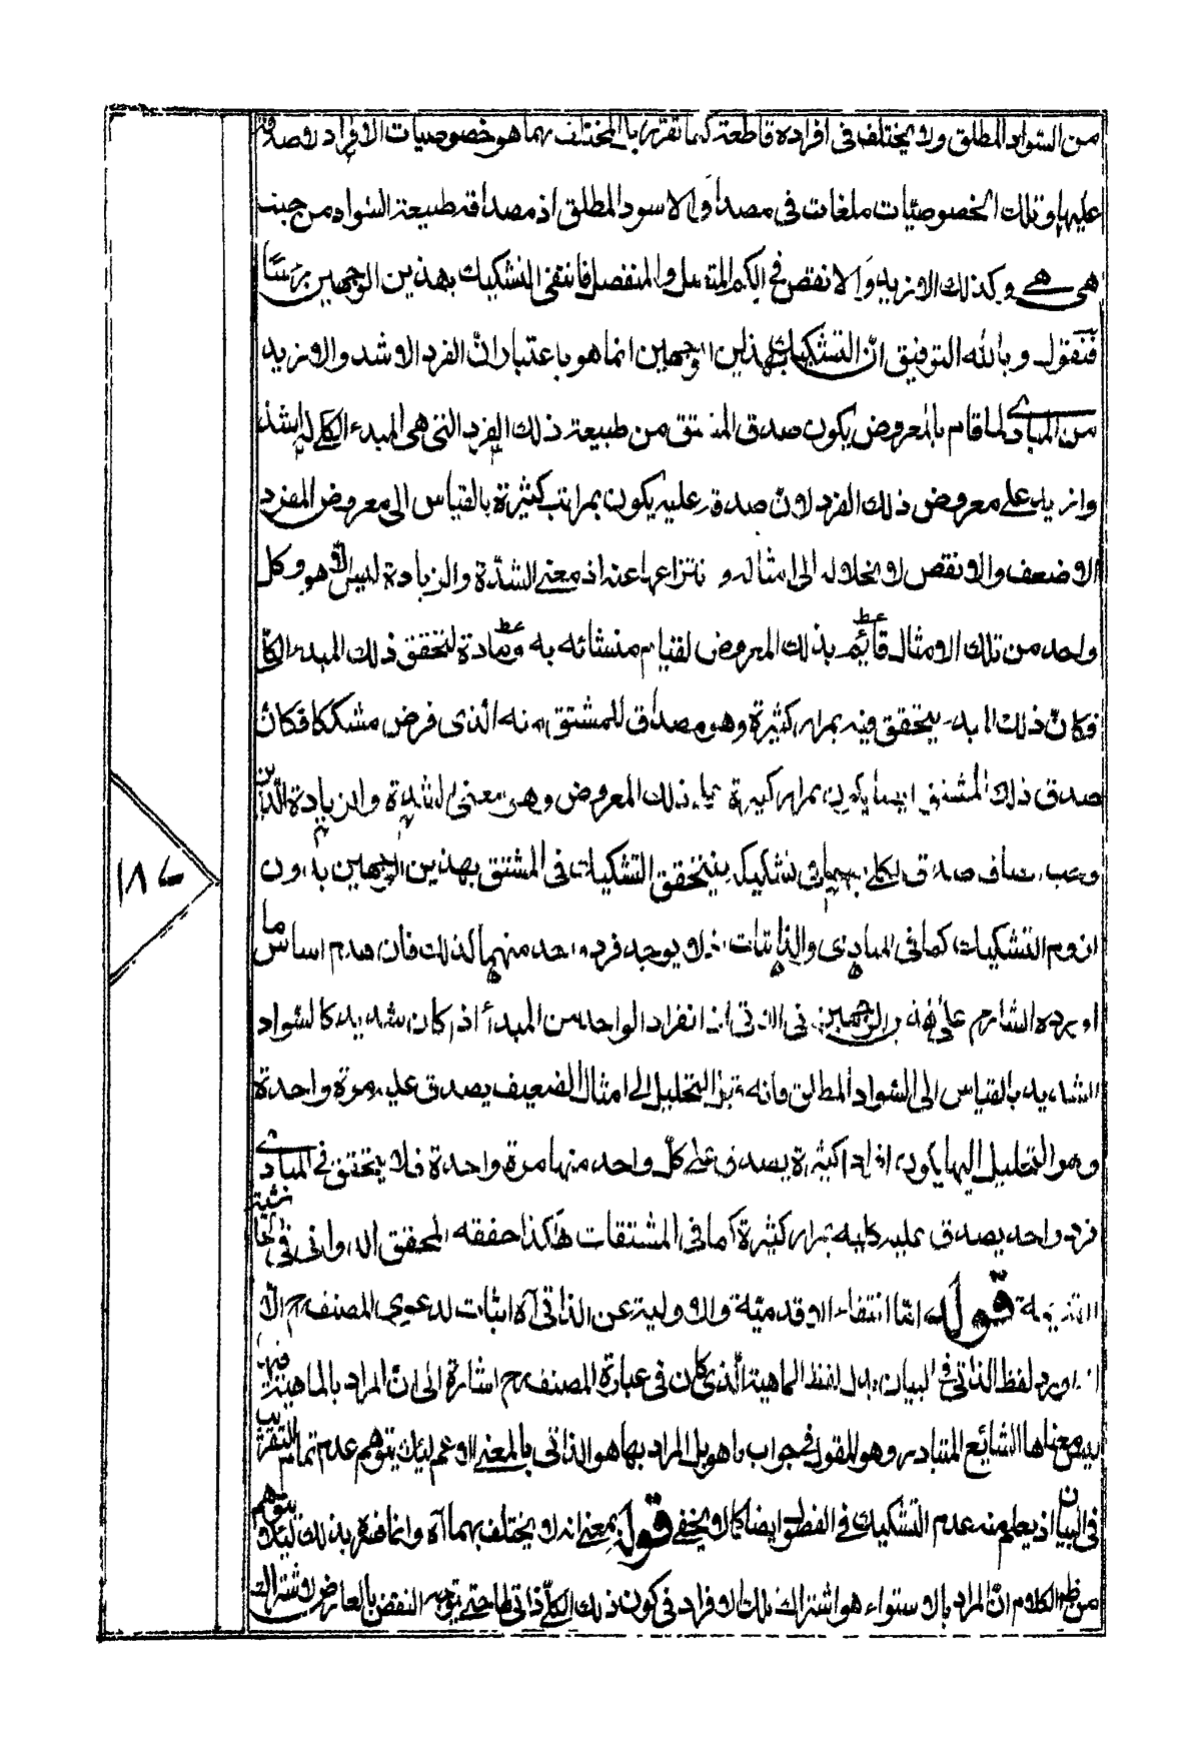 من السواد المطلق ولا يختلف فى افراده قاطعة كما تقرر بل المختلف بهما هو خصوصيات الافراد لا صدقه
عليها وتلك الخصوصيات ملغات فى مصداق الاسود المطلق اذ مصداقه طبيعة السواد من حيث
هى هى وكذلك الازيد والانقص فى الكم المتصل والمنفصل فانتفى التشكيك بهذين الوجهين
فنقول وبالله التوفيق ان التشكيك بهذين الوجهين انما هو باعتبار ان الفرد الاشد والازيد
من المبادى لما قام بالمعروض يكون صدق المشتق من طبيعة ذلك الفرد التى هى المبدء الكلى له اشد
وازيد على معروض ذلك الفرد لان صدقه عليه يكون بمراتب كثيرة بالقياس الى معروض الفرد
الاضعف والانقص لانحلاله الى امثاله و انتزاعها عنه اذ معنى الشدة والزيادة ليس الا هو وكل
واحد من تلك الامثال قائم بذلك المعروض لقيام منشائه به ومادة لتحقق ذلك المبدء الكلى
فكان ذلك المبدء يتحقق فيه بمرار كثيرة وهو مصداق للمشتق منه الذى فرض مشككا فكان
صدق ذلك المشتق ايضا يكون بمرار كثيرة على ذلك المعروض وهو معنى الشدة والزيادة الذين
صدق الكلى بهما تشكيك فيتحقق التشكيك فى المشتق بهذين الوجهين بدون
لزوم التشكيك كما فى المبادى والذاتيات اذ لا يوجد فرد واحد منهما كذلك فانهدم اساس ما
اورده الشارح على هذين الوجهين فى الذاتى ان انفراد الواحد من المبدأ اذ كان شديد كالسواد
الشديد بالقياس الى السواد المطلق فانه قبل التحليل الى امثال الضعيف يصدق عليه مرة واحدة
وبعد التحليل اليها يكون افرادا كثيرة يصدق على كل واحد منها مرة واحدة فلا يتحقق فى المبادى
فرد واحد يصدق عليه كليه بمرار كثيرة كما فى المشتقات هكذا حققه المحقق الدوانى فى الحاشية
القديمة قوله اما انتفاء الاقدمية والاولية عن الذاتى آه اثبات لدعوى المصنف رح الا
انه اورد لفظ الذاتى فى البيان بدل لفظ الماهية الذى كان فى عبارة المصنف رح اشارة الى ان المراد بالماهية فيها
ليس معناها الشائع المتبادر وهو المقول فى جواب ما هو بل المراد بها هو الذاتى بالمعنى الاعم ليك يتوهم عدم تمام التقريب
فى البيان اذ يعلم منه عدم التشكيك فى الفصول ايضا كما لا يخفى قوله بمعنى انه لا يختلف بهما آه وانما فسره بذلك ليلا يتوهم
من ظاهر الكلام ان المراد بالاستواء هو اشتراك تلك الافراد فى كون ذلك الكلى ذاتى لها حتى يتوجه النقض بالعارض لاشتراك
١٨٤